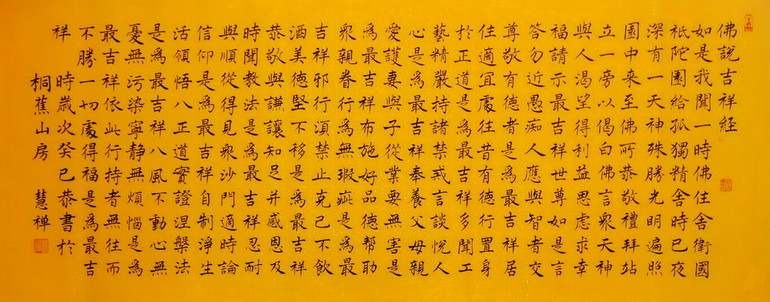 佛說吉祥經
如是我聞一時佛住舍衛國
祇陀園給孤獨精舍時已夜
深有一天神殊勝光明遍照
園中來至佛所恭敬禮拜站
立一旁以偈白佛言眾天神
與人渴望得利益思慮求幸
福請示最吉祥世尊如是言
答勿近愚痴人應與智者交
尊敬有德者是為最吉祥居
住適宜處往昔有德行置身
於正道是為最吉祥多聞工
藝精嚴持諸禁戒言談悅人
心是為最吉祥奉養父母親
愛護妻與子從業要無害是
為最吉祥布施好品德幫助
眾親眷行為無瑕疵是為最
吉祥邪行須禁止克己不飲
酒美德堅不移是為最吉祥
恭敬與謙讓知足并感恩及
時聞教法是為最吉祥忍耐
與順從得見眾沙門適時論
信仰是為最吉祥自制淨生
活領悟八正道實證涅槃法
是為最吉祥八風不動心無
憂無污染寧靜無煩惱是為
最吉祥依此行持者無往而
不勝一切處得福是為最吉
祥 時歲次癸巳恭書於
桐蕉山房 慧禪